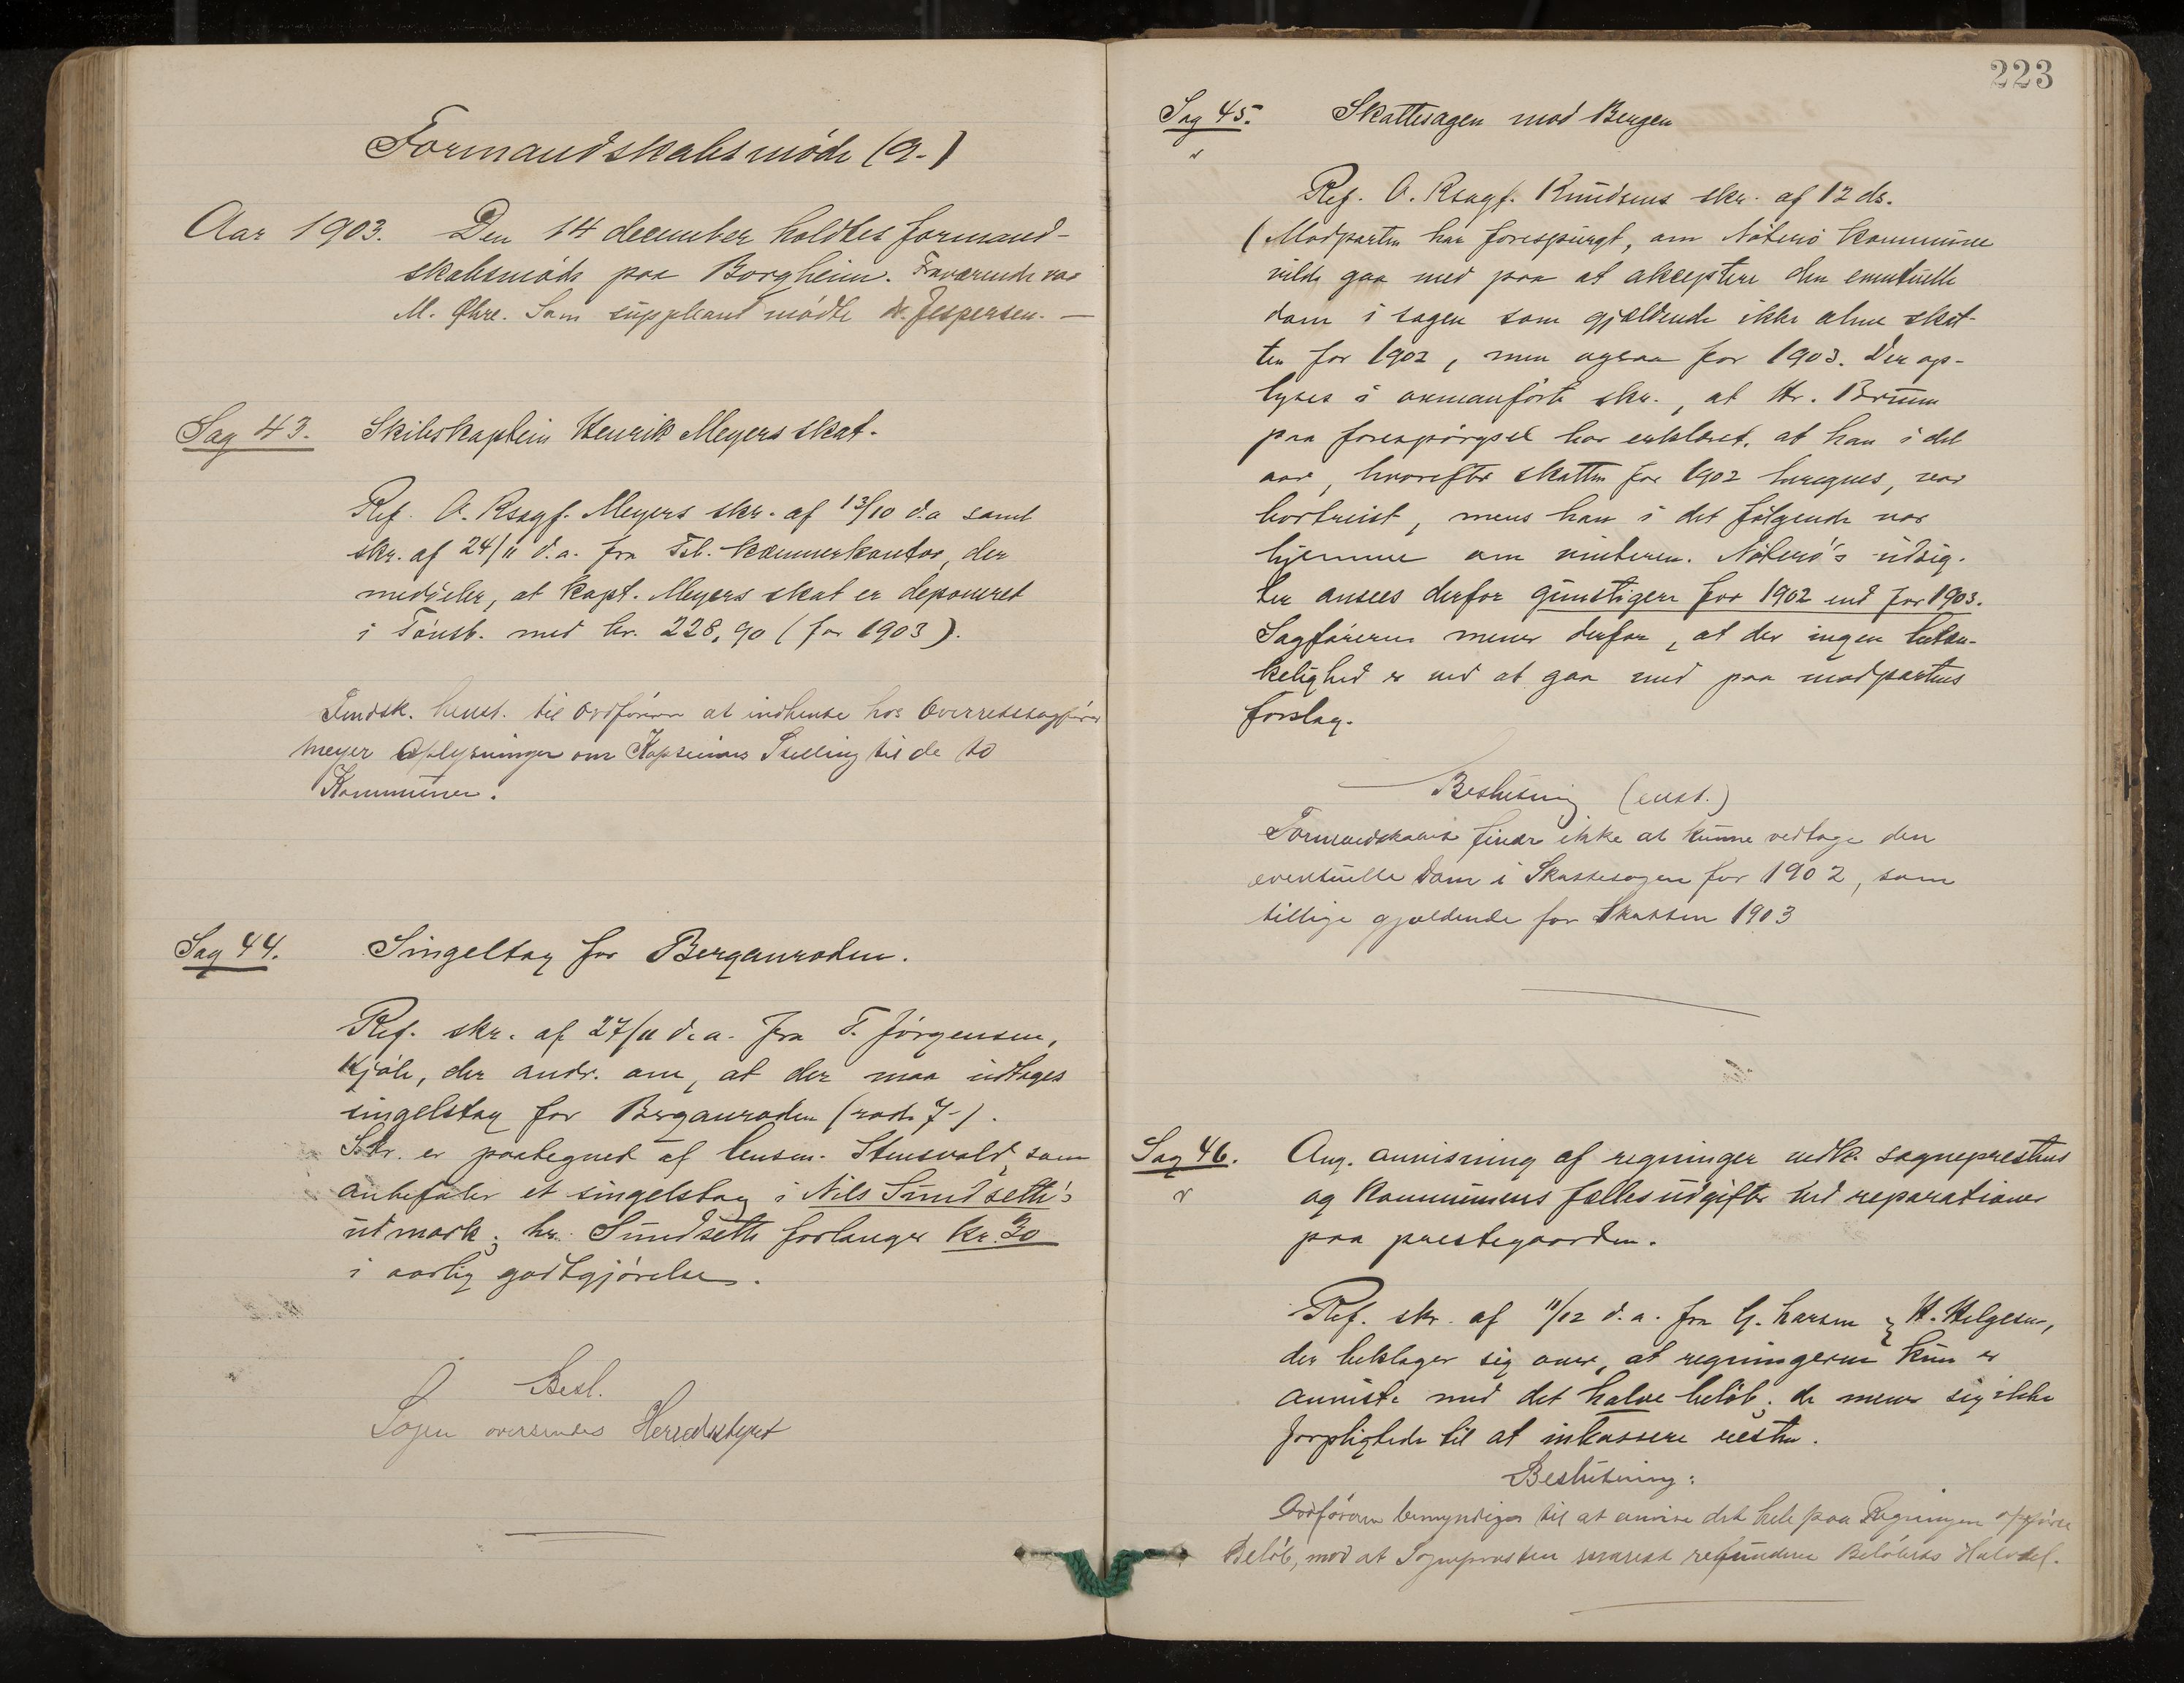 Formandskabsmöde (9.)
Aar 1903. Den 14 december holdtes formand-
skabsmöde paa Borgheim. Fraværende var
M. Øhre. Som suppleant mödte A. Jespersen. —
Sag 43. Skibskaptein Henrik Meyers skat.
Ref. O. Rsagf. Meyers skr. af 13/10 d.a samt
skr. af 24/11 d.a. fra Tsb. kæmnerkontor, der
meddeler, at kapt. Meyers skat er deponeret
i Tönsb. med kr. 228,90 (for 1903).
Fmdsk. henst. til Ordföreren at indhente hos Overretssagförer
Meyer Oplysninger om Kapteinens Stilling til de to
Kommuner.
Sag 44. Singeltag for Berganroden.
Ref. skr. af 27/11 d.a. fra T. Jörgensen,
Kjöle, der andr. om, at der maa udtages
singelstag for Berganroden (rode 7).
Skr. er paategnet af lensm. Stensvold, som
anbefaler et singelstag i Nils Sundseth's
udmark; hr. Sundseth forlanger kr. 30
i aarlig godtgjörelse.
Besl.
Sagen oversendes Herredsstyret
223
Sag 45. Skattesagen mod Bergen
Ref. O. Rsagf. Knudsens skr. af 12 ds.
(Modparten har forespurgt, om Nöterö kommune
vilde gaa med paa at akceptere den eventuelle
dom i sagen som gjældende ikke alene skat-
ten for 1902, men ogsaa for 1903. Der op-
lyses i ovenanförte skr., at Hr. Bruun
paa forespörgsel har erklæret, at han i det
aar, hvorefter skatten for 1902 beregnes, var
bortreist, mens han i det fölgende var
hjemme om vinteren. Nöterö's udsig-
ter ansees derfor gunstigere for 1902 end for 1903.
Sagföreren mener derfor, at der ingen betæn-
kelighed er ved at gaa med paa modpartens
forslag.
Beslutning (enst.)
Formandskabet finder ikke at kunne vedtage den
eventuelle Dom i Skattesagen for 1902, som
tillige gjældende for Skatten 1903
Sag 46. Ang. anvisning af regninger vedk. sogneprestens
og kommunens fælles udgifter ved reparationer
paa prestegaarden.
Ref. skr. af 11/12 d.a. fra G. Larsen & H. Helgesen,
der beklager sig over, at regningerne kun er
anviste med det halve belöb; de mener sig ikke
forpligtede til at inkassere resten.
Beslutning:
Ordföreren bemyndiges til at anvise det hele paa Regningen opförte
Belöb, mod at Sognepresten senerest refunderer Belöbets Halvdel.